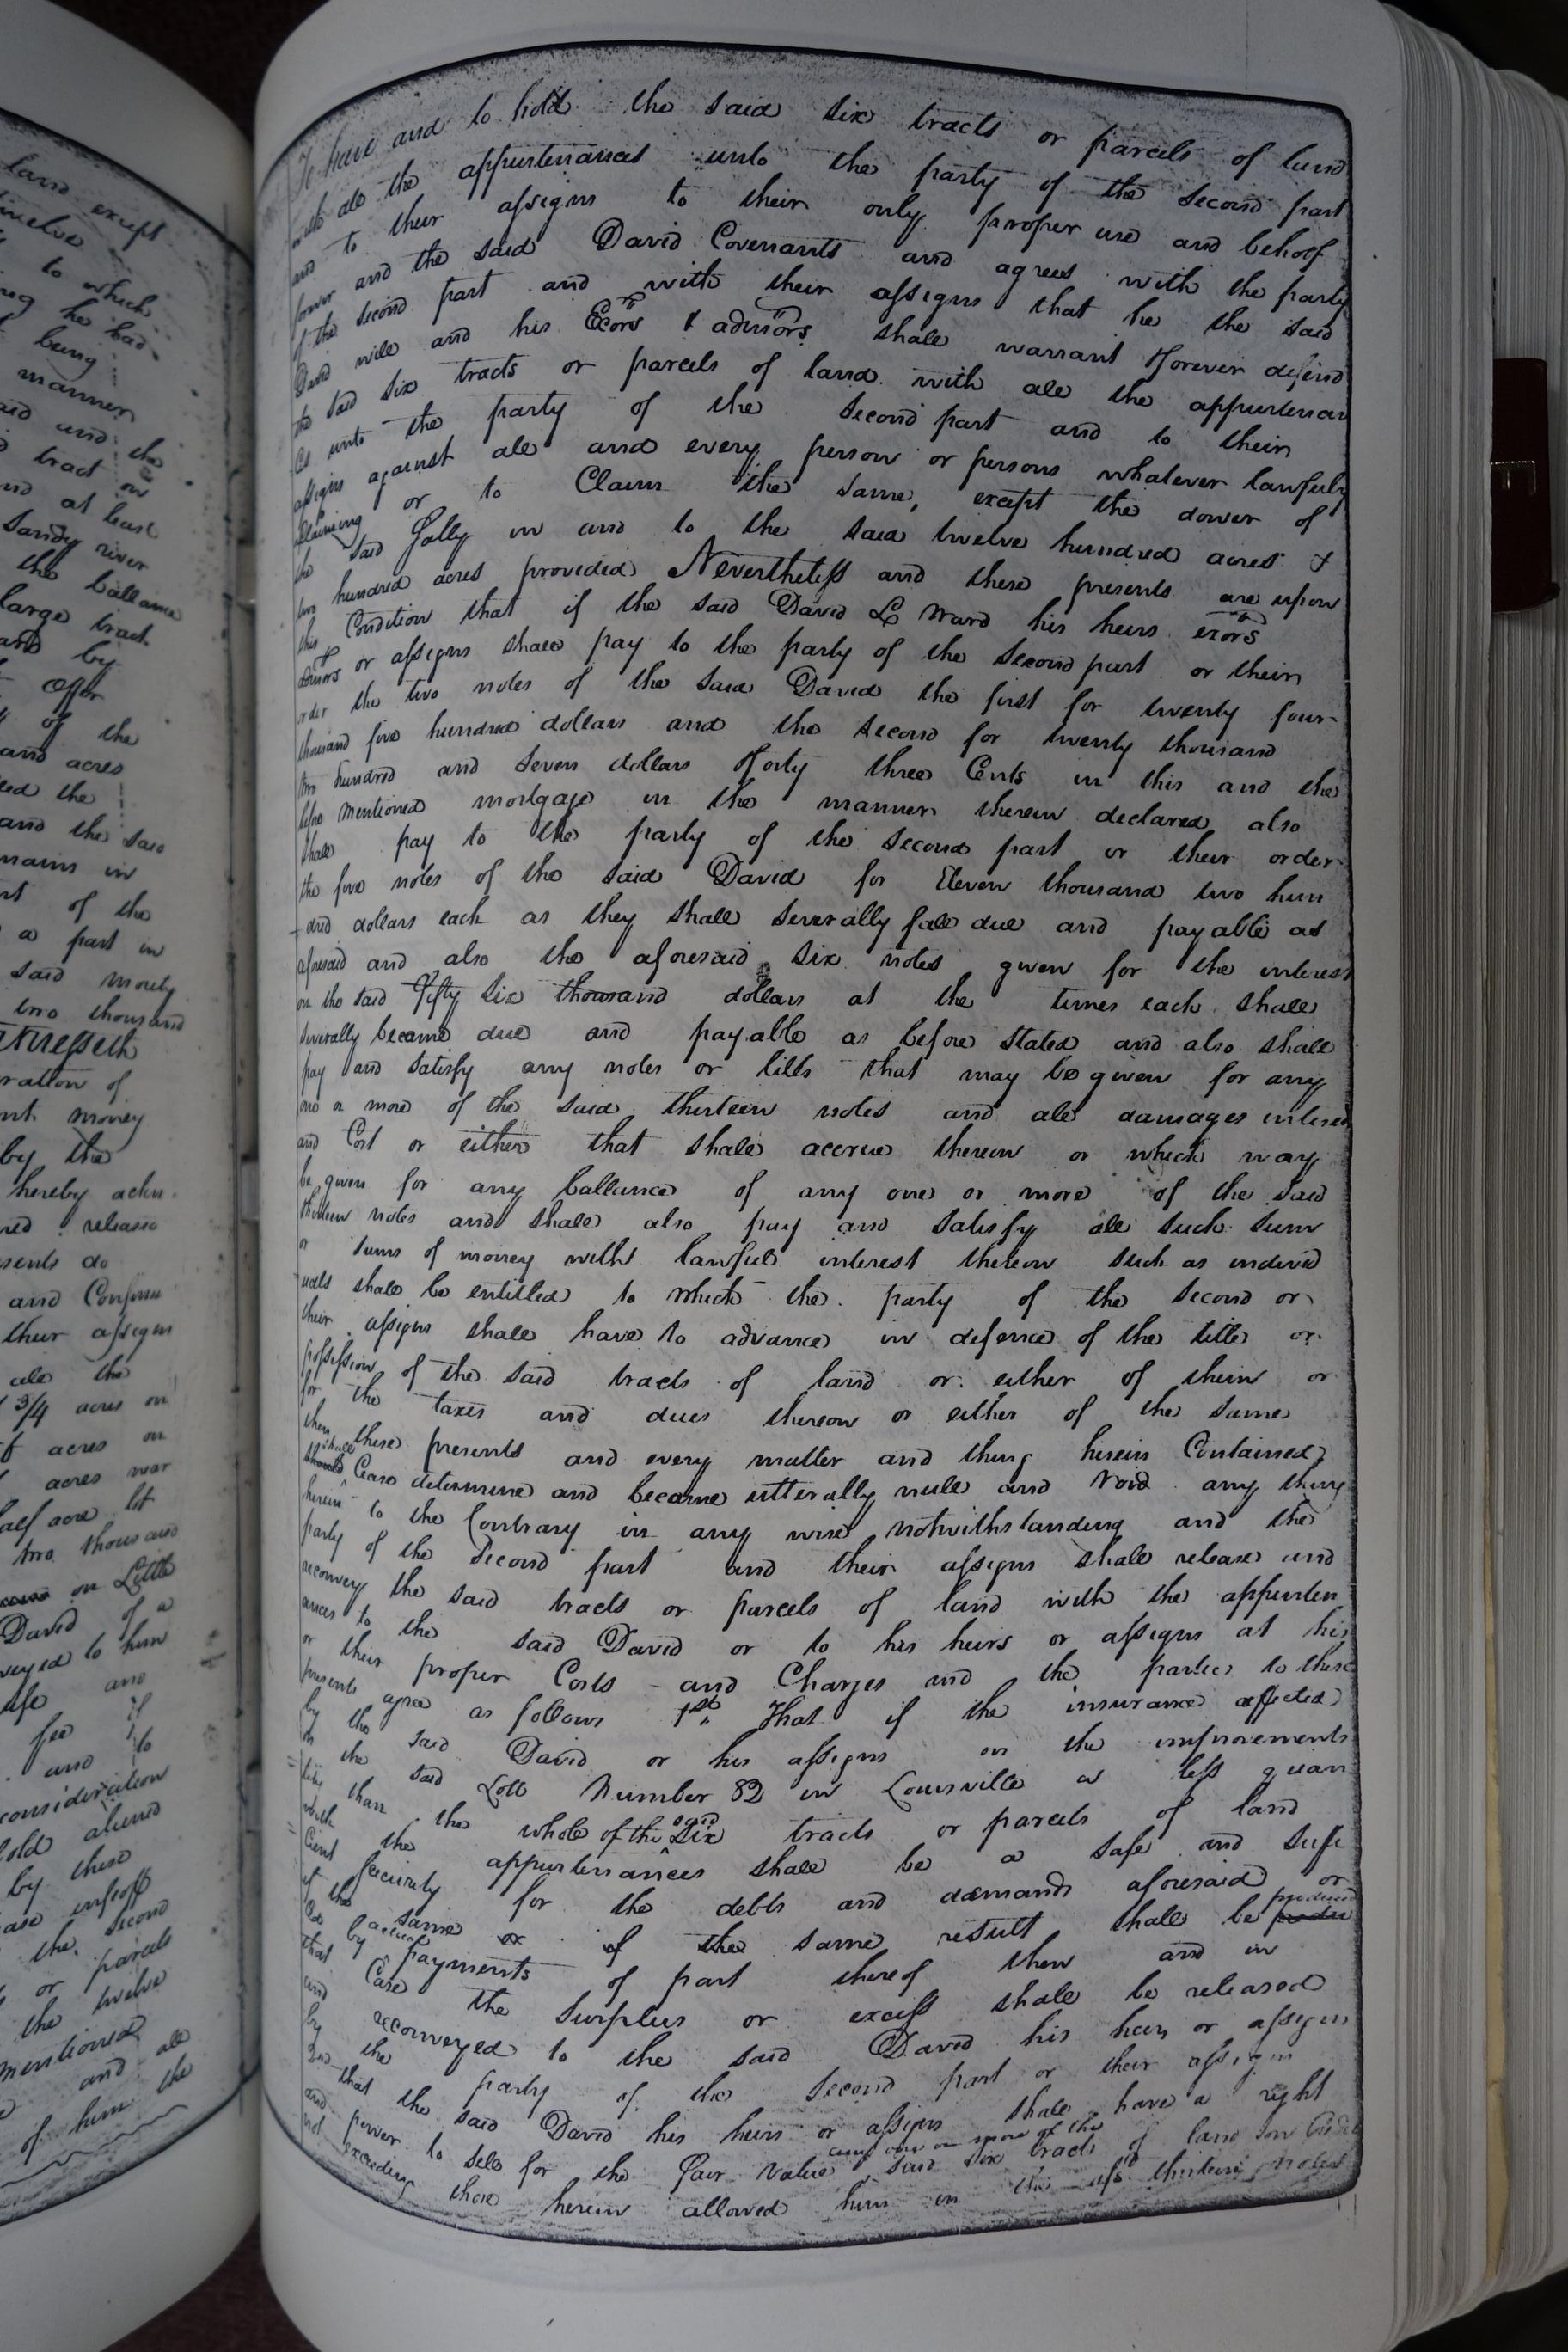 land except
twelve
to which
he had
being
manner
and the
tract on
and at least
Sandy river
the ballance
large tract
and by
offer
of the
and acres
the
and the said
remains in
of the
a part in
said
two thousand
Witnesseth
ration of
money
by the
hereby ackn
released
sents do
and Confirm
their assigns
all the
3/4 acres on
acres on
acres near
half acre lot
two thousand
on Little
David of a
veyed to him
and
fee if
and to
consideration
sold aliend
by these
enfeoff
the second
or parcels
the twelve
mentioned
and all
of him the
To have and to hold the said six tracts or parcels of land
with all the appurtenances unto the party of the second part
and to their assigns to their only proper use and behoof
forever and the said David Covenants and agrees with the party
of the second part and with their assigns that he the said
David will and his Ecors & admors shall warrant & forever defend
the said six tracts or parcels of land with all the appurtenan
ces unto the party of the second part and to their
assigns against all and every person or persons whatever lawfully
claiming or to Claim the same, except the dower of
the said Sally in and to the said twelve hundred acres &
two hundred acres provided Nevertheless and these presents are upon
this Condition that if the said David L Ward his heirs exors
admors or assigns shall pay to the party of the second part or their
order the two notes of the said David the first for twenty four
thousand five hundred dollars and the second for twenty thousand
two hundred and seven dollars & forty three Cents in this and the
before mentioned mortgage in the manner therein declared also
shall pay to the party of the second part or their order
the five notes of the said David for Eleven thousand two hun
dred dollars each as they shall severally fall due and payable as
aforesaid and also the aforesaid six notes given for the interest
on the said Fifty six thousand dollars at the times each shall
severally become due and payable as before stated and also shall
pay and satisfy any notes or bills that may be given for any
one or more of the said thirteen notes and all damages interest
and Cost or either that shall accrue thereon or which may
be given for any ballance of any one or more of the said
thirteen notes and shall also pay and satisfy all such sum
or sums of money with lawfull interest thereon such as individ
uals shall be entitled to which the party of the second or
their assigns shall have to advance in defence of the title or
possession of the said tracts of land or either of them or
for the taxes and dues thereon or either of the same
then these presents and every matter and thing herein Contained
shall Cease determine and become utterally null and void any thing
herein to the Contrary in any wise notwithstanding and the
party of the second part and their assigns shall release and
reconvey the said tracts or parcels of land with the appurten
ances to the said David or to his heirs or assigns at his
or their proper Costs and Charges and the parties to these
presents agree as follows 1st That if the insurance affected
by the said David or his assigns on the improvements
on the said Lott Number 82 in Louisville a less quan
tity than the whole of the said six tracts or parcels of land
with the appurtenances shall be a safe and suffi
cient security for the debts and demands aforesaid or
if the same or if the same result shall be produced
by actual payments of part thereof then and in
that Case the surplus or excess shall be released
and reconveyed to the said David his heirs or assigns
by the party of the second part or their assigns
2nd that the said David his heirs or assigns shall have a right
and power to sell for the fair value any one or more of the said six tracts of land on Credit
not exceeding those herein allowed him in the afd thirteen notes